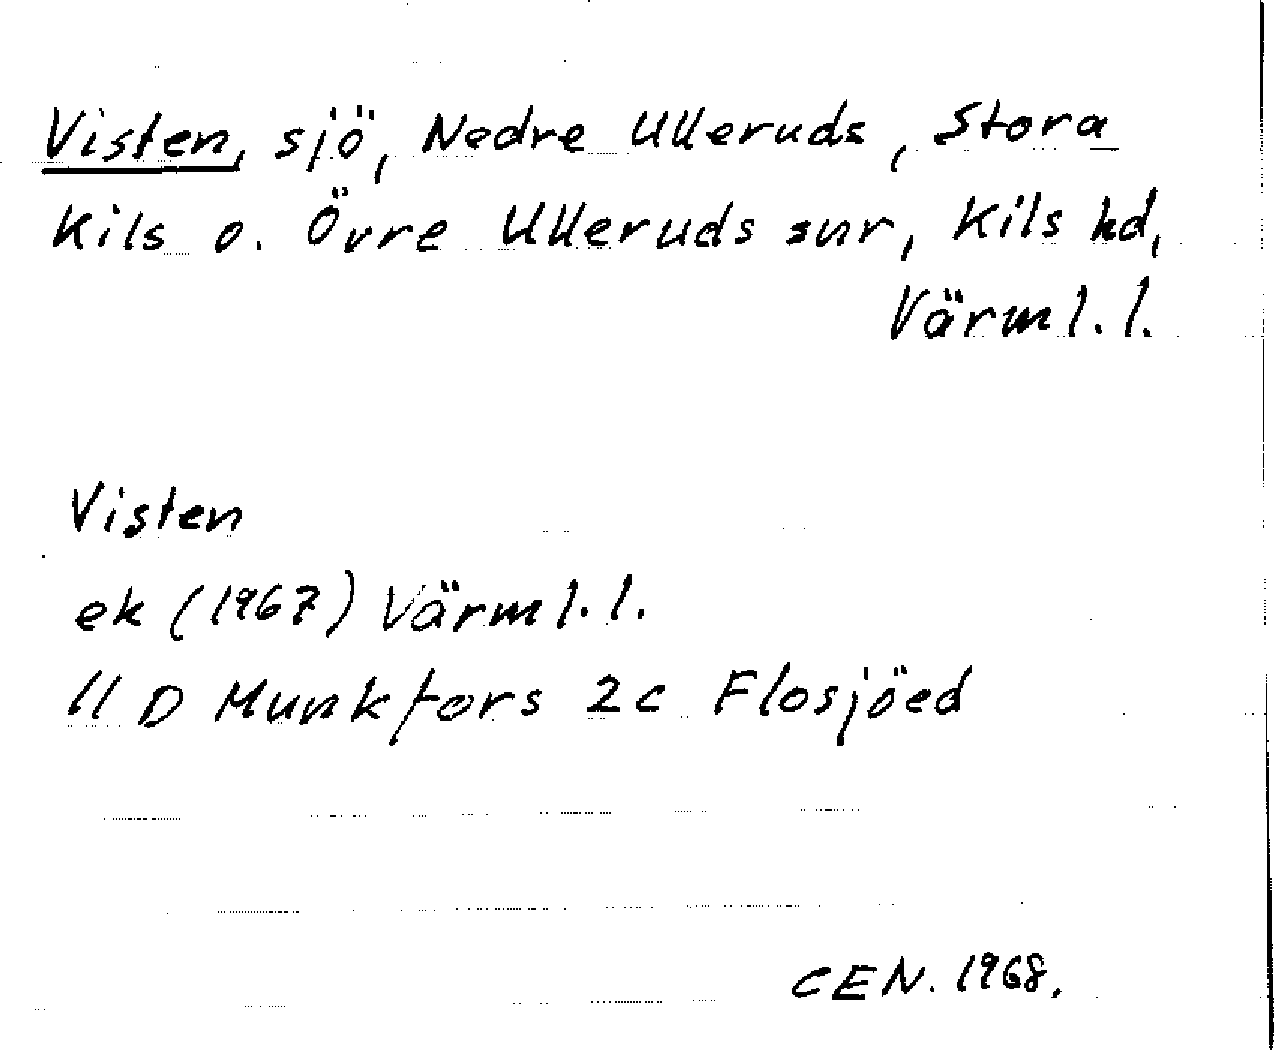 Visten, sjö, Nedre Ulleruds, Stora
Kils o. Övre Ulleruds snr, Kils hd,
Värml. l.
Visten
ek (1967) Värml. l.
11 D Munkfors 2c Flosjöed
CEN. 1968.